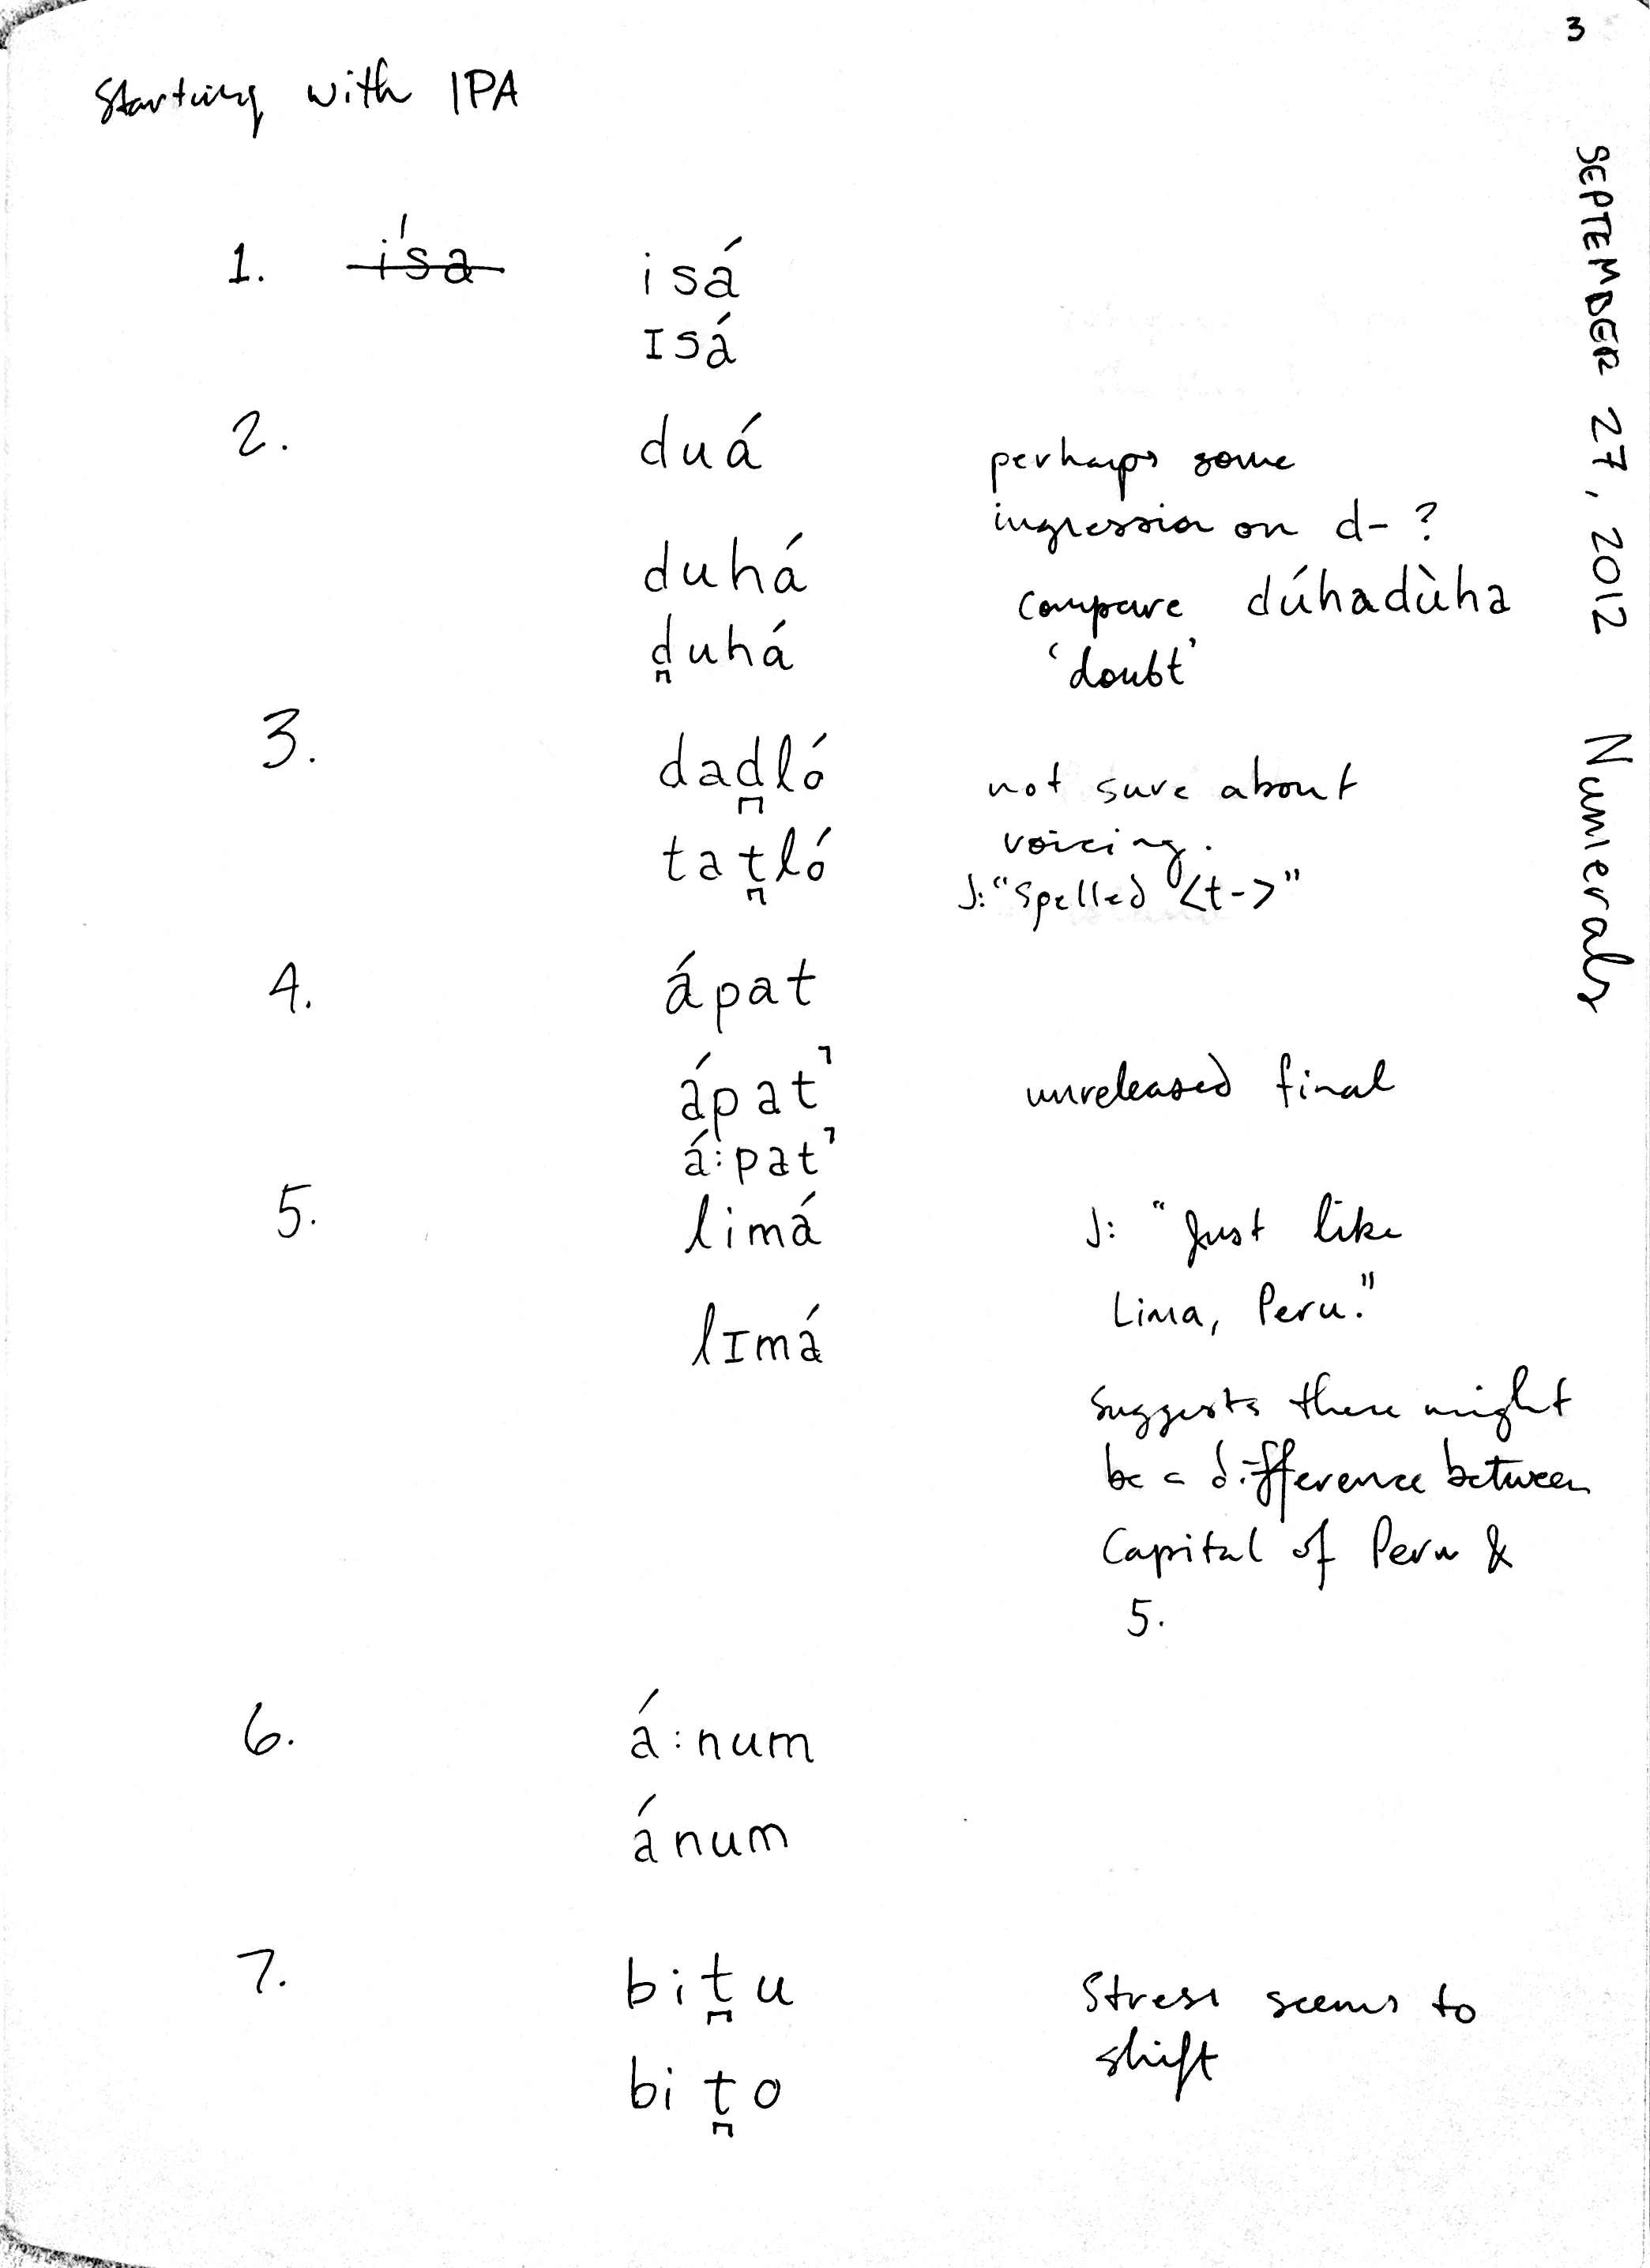 3
SEPTEMBER 27, 2012 Numerals
Starting with IPA
1. i'sa isá
ɪsá
2. duá perhaps some
ingression on d- ?
duhá compare dúhadùha
d̪uhá 'doubt'
3. dad̪ló not sure about
voicing.
tat̪ló J: "Spelled <t->"
4. ápat
ápat̚ unreleased final
á:pat̚
5. limá J: "Just like
Lima, Peru."
lɪmá
suggests there might
be a difference between
Capital of Peru &
5.
6. á:num
ánum
7. bit̪u Stress seems to
shift
bit̪o